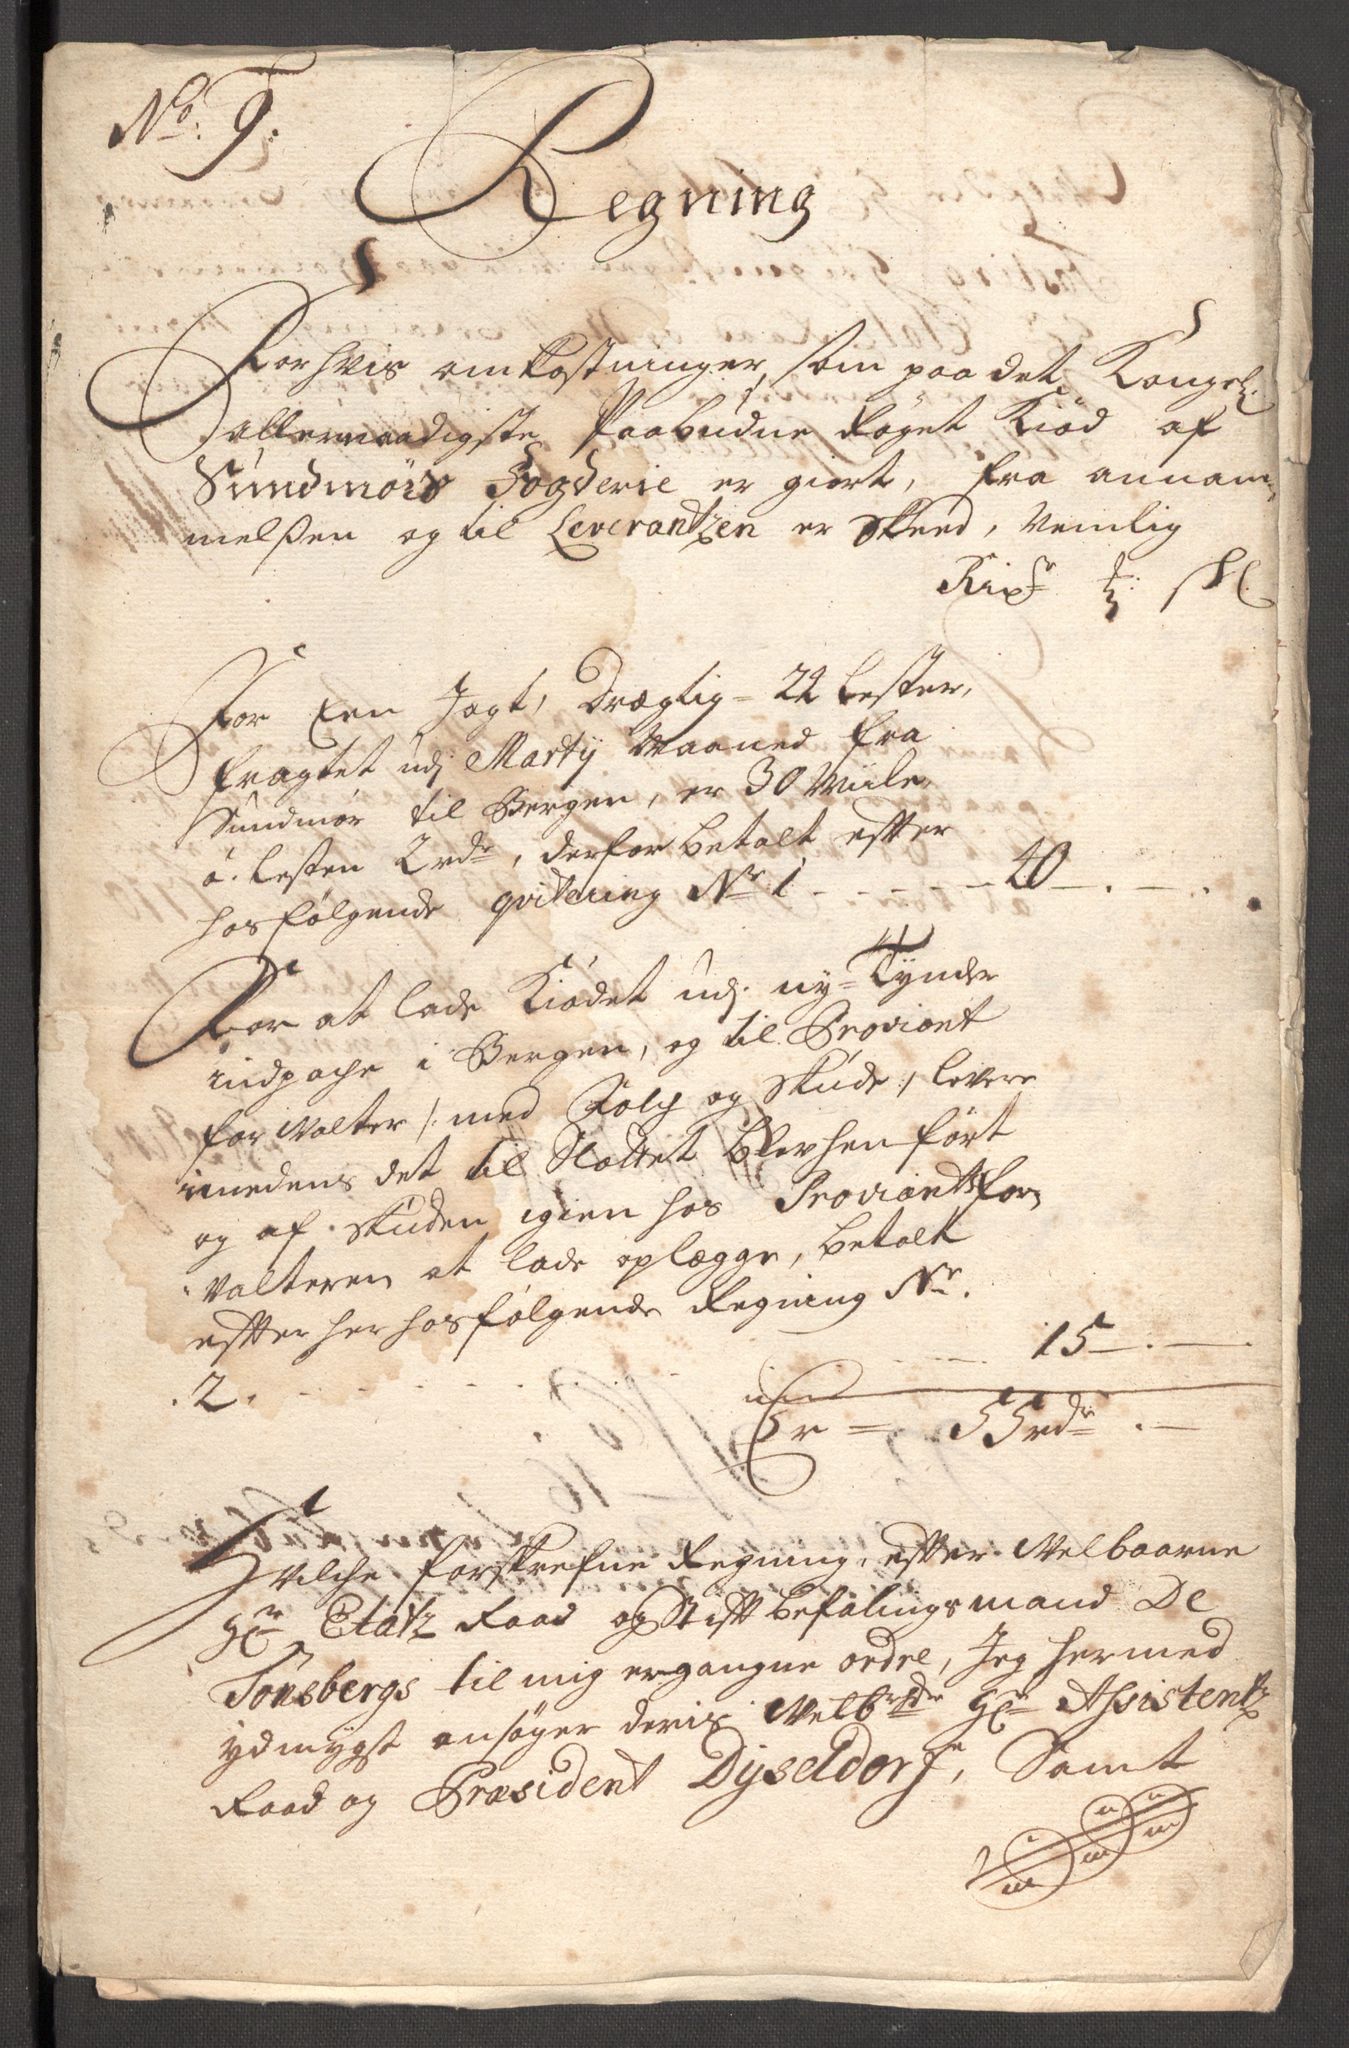 No. 9.
Regning
For hvis omkostninger, som paa det Kongel:
allernaadigste Paabudne Røget Kiød af
Sundmørs Fogderie er giort, fra annam,
melßen og til Leverantzen er skeed, Nemlig
Rixdr ß
For Een Jagt, drægtig = 22 Lester,
fragtet udj Martij Maaned fra
Sundmør til Bergen, er 30 Miile,
a. Lesten 2 rdr, derfor betalt efter
hosfølgende qvitering Nr 1 - - - - - 40 - . - .
For at lade Kiødet udj ny = Tynder
indpache i Bergen, og til Proviant
forvalter /: med Folch og Skude :/ levere
imedens det til Slottet blef hen ført
og af Skuden igien hos Proviantsfor,
valteren at lade oplægge, betalt
efter her hosfølgende Regning Nr.
. 2 . - - - - - 15 - . -
Er = 55 rdr . -
Hvilche forskrefne Regning, efter Velbaarne
Hr Etatz Raad og Stiftbefalingsmand De
Tonsbergs til mig ergangne ordre, Jeg hermed
ydmygst ansøger deris Velbrdr Hr Assistentz
Raad og Præsident Dyseldorf, Samt